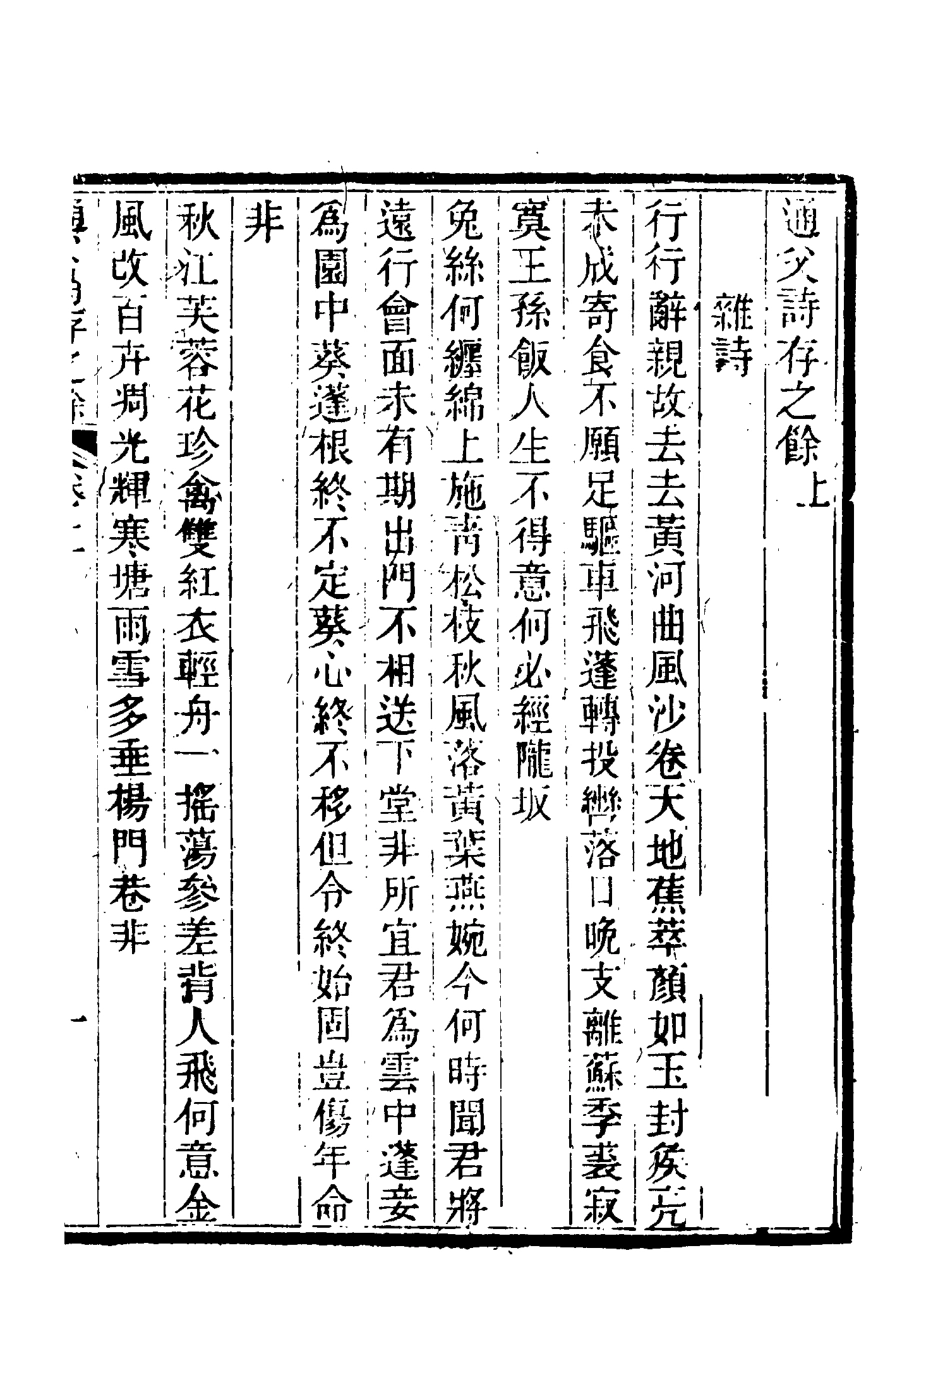 通父詩存之餘上
雜詩
行行辭親故去去黃河曲風沙卷天地蕉萃顏如玉封矦亮
未成寄食不願足驅車飛蓬轉投轡落日晚支離蘇季裘寂
寞王孫飯人生不得意何必經隴坂
兔絲何纏綿上施靑松枝秋風落黃葉燕婉今何時聞君將
遠行會面未有期出門不相送下堂非所宜君爲雲中蓬妾
爲園中葵蓬根終不定葵心終不移但令終始固豈傷年命
非
秋江芙蓉花珍禽雙紅衣輕舟一搖蕩參差背人飛何意金
風改百卉凋光輝寒塘雨雪多垂楊門巷非
存之餘 卷上 一